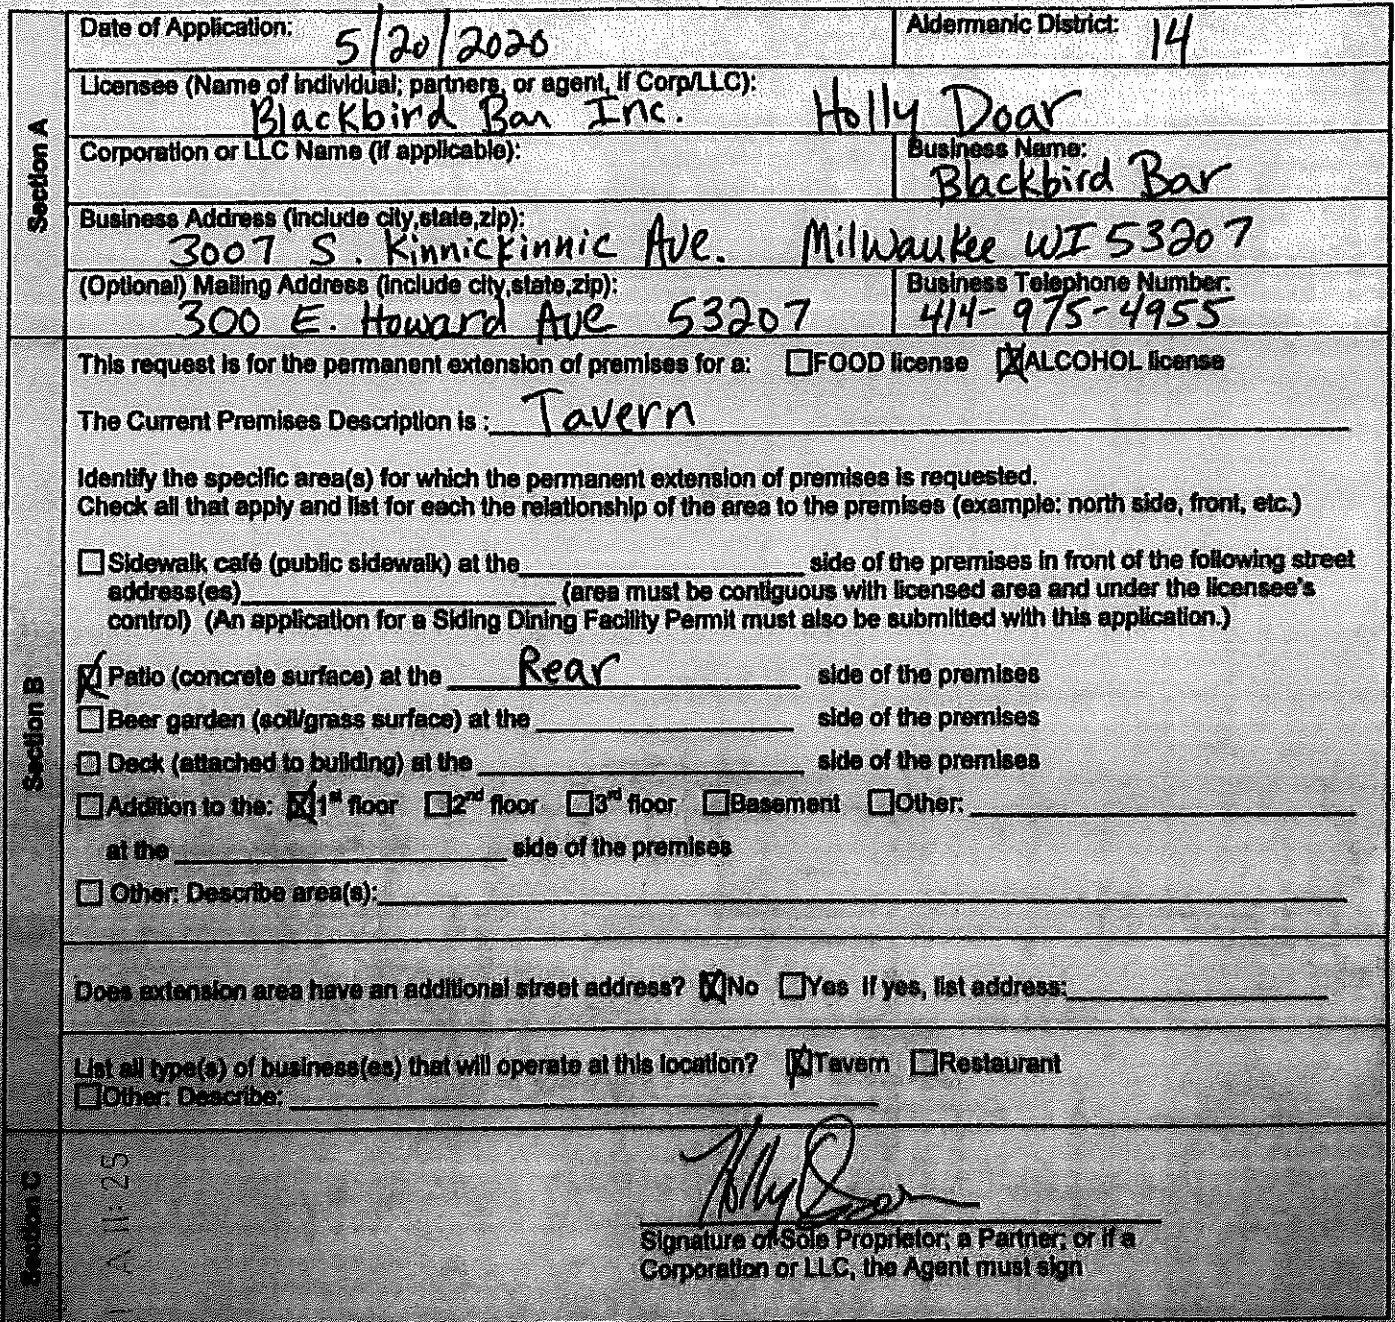 Section A
Date of Application: 5/20/2020
Aldermanic District: 14
Licensee (Name of individual; partners, or agent, if Corp/LLC):
Blackbird Bar Inc. Holly Doar
Corporation or LLC Name (if applicable):
Business Name:
Blackbird Bar
Business Address (include city,state,zip):
3007 S. Kinnickinnic Ave. Milwaukee WI 53207
(Optional) Mailing Address (include city,state,zip):
300 E. Howard Ave 53207
Business Telephone Number:
414-975-4955
Section B
This request is for the permanent extension of premises for a: ☐FOOD license ☒ALCOHOL license
The Current Premises Description is : Tavern
Identify the specific area(s) for which the permanent extension of premises is requested.
Check all that apply and list for each the relationship of the area to the premises (example: north side, front, etc.)
☐Sidewalk café (public sidewalk) at the____________ side of the premises in front of the following street
address(es)____________ (area must be contiguous with licensed area and under the licensee's
control) (An application for a Siding Dining Facility Permit must also be submitted with this application.)
☒Patio (concrete surface) at the Rear side of the premises
☐Beer garden (soil/grass surface) at the____________ side of the premises
☐Deck (attached to building) at the____________ side of the premises
☐Addition to the: ☒1st floor ☐2nd floor ☐3rd floor ☐Basement ☐Other:____________
at the____________ side of the premises
☐Other: Describe area(s):____________
Does extension area have an additional street address? ☒No ☐Yes If yes, list address:____________
List all type(s) of business(es) that will operate at this location? ☒Tavern ☐Restaurant
☐Other: Describe:____________
Section C
A 11:25
Holly Doar
Signature of Sole Proprietor; a Partner; or if a
Corporation or LLC, the Agent must sign